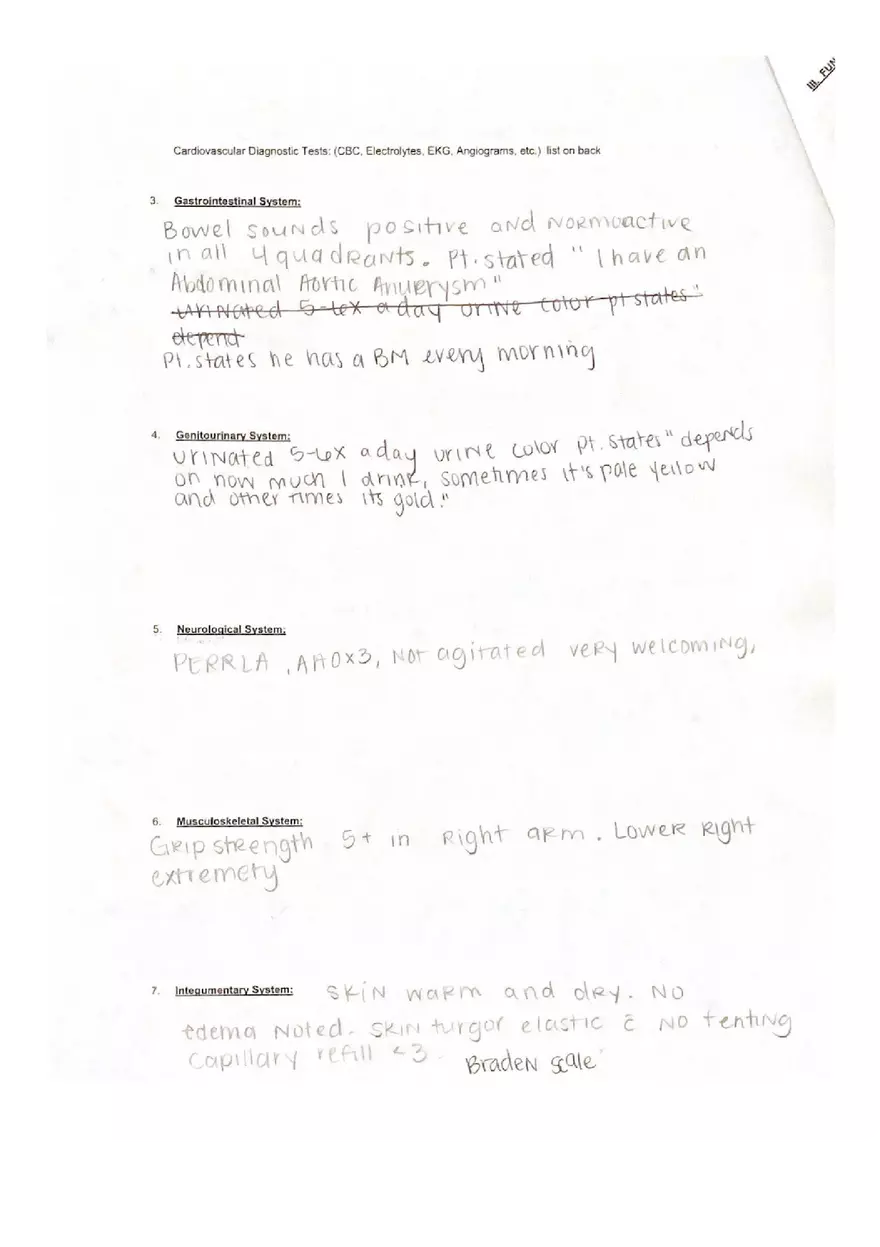 III. FUN
Cardiovascular Diagnostic Tests: (CBC, Electrolytes, EKG, Angiograms, etc.) list on back
3. Gastrointestinal System:
Bowel sounds positive and normoactive
in all 4 quadrants. Pt. stated "I have an
Abdominal Aortic Anuerysm"
urinated 5-6x a day urine color pt states "
depend
Pt. states he has a BM every morning
4. Genitourinary System:
urinated 5-6x a day urine color pt. states "depends
on how much I drink, sometimes it's pale yellow
and other times its gold."
5. Neurological System:
PERRLA, AAOx3, Not agitated very welcoming,
6. Musculoskeletal System:
Grip strength 5+ in Right arm. Lower Right
extremety
7. Integumentary System: Skin warm and dry. No
edema Noted. Skin turgor elastic c̄ no tenting
Capillary refill <3. Braden scale